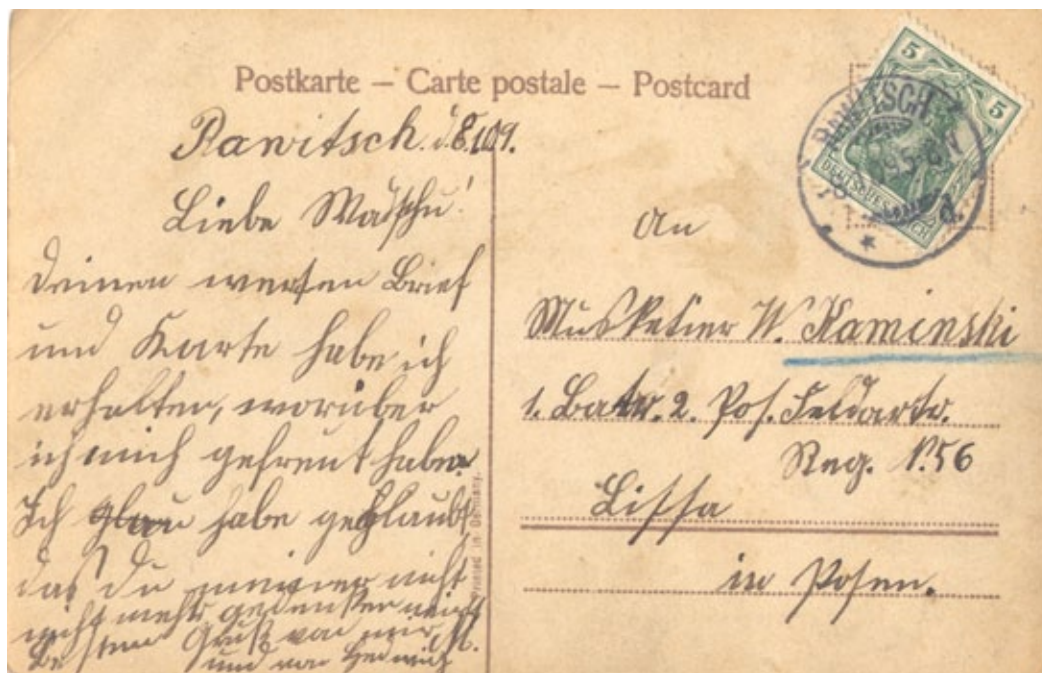 Postkarte – Carte postale – Postcard
Rawitsch. d. 8. 1. 09.
Liebe
Deinen werten Brief
und Karte habe ich
erhalten, worüber
ich mich gefreut habe.
Ich glau habe geglaubt
das Du meiner nicht
nicht mehr gedenken wirst
Besten Gruß von mir M.
und von Hedwich
Printed in Germany.
5 5
DEUTSCHES REICH
RAWITSCH
An
Musketier W. Kaminski
1. Battr. 2. Pos. Feldartr.
Reg. N. 56
Lissa
in Posen.